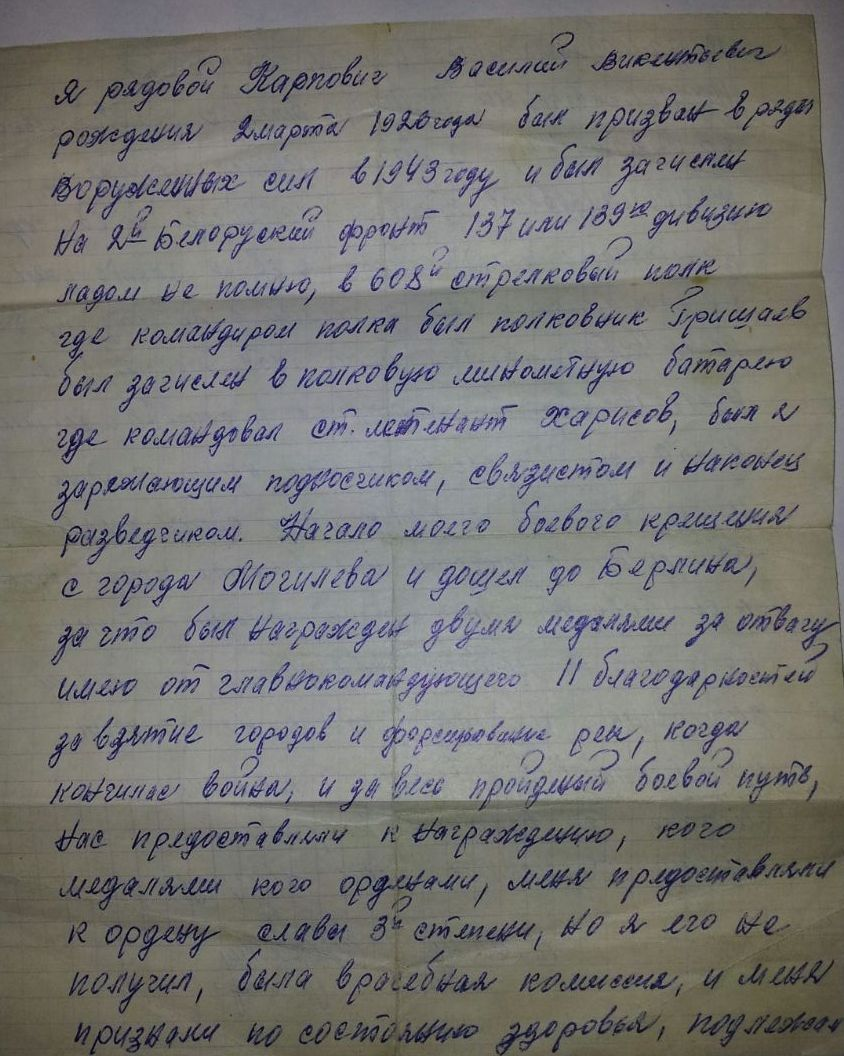 Я рядовой Карпович Василий Викентьевич
рождения 2 марта 1926 года был призван в ряды
Воруженных сил в 1943 году и был зачислен
на 2й Белоруский фронт 137 или 139ю дивизию
ладом не помню, в 608й стрелковый полк
где командиром полка был полковник Гришаев
был зачислен в полковую минометную батарею
где командовал ст. летенант Харисов, был я
заряжающим подносчиком, связистом и наконец
разведчиком. Начало моего боевого крещения
с города Могилева и дошел до Берлина,
за что был награжден двумя медалями за отвагу
имею от главнокомандующего 11 благодарностей
за взятие городов и форсирование рек, когда
кончилас война, и за весь пройденый боевой путь,
нас предоставляли к награждению, кого
медалями кого орденами, меня предоставляли
к ордену славы 3й степени, но я его не
получил, была врачебная комиссия, и меня
признали по состоянию здоровья, подлежал